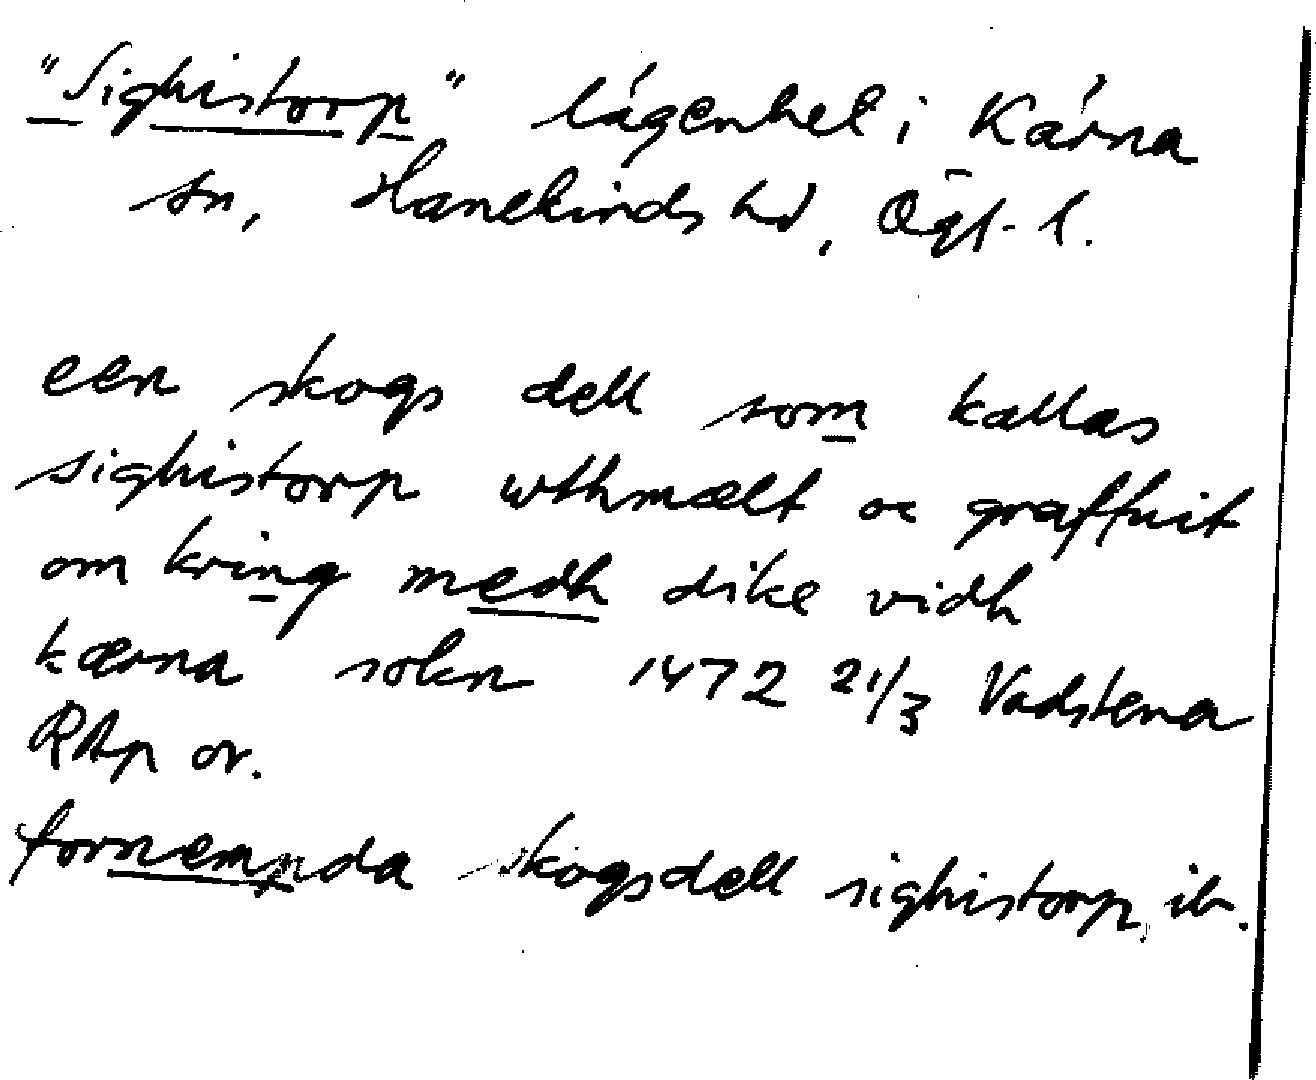 "Sighistorp" lägenhet i Kärna
sn, Hanekinds hd, Ögl. l.
een skogs dell som kallas
sighistorp wthmælt oc graffuit
om kring medh dike vidh
kærna sokn 1472 21/3 Vadstena
RAp or.
fornempnda skogsdell sighistorp, ib.